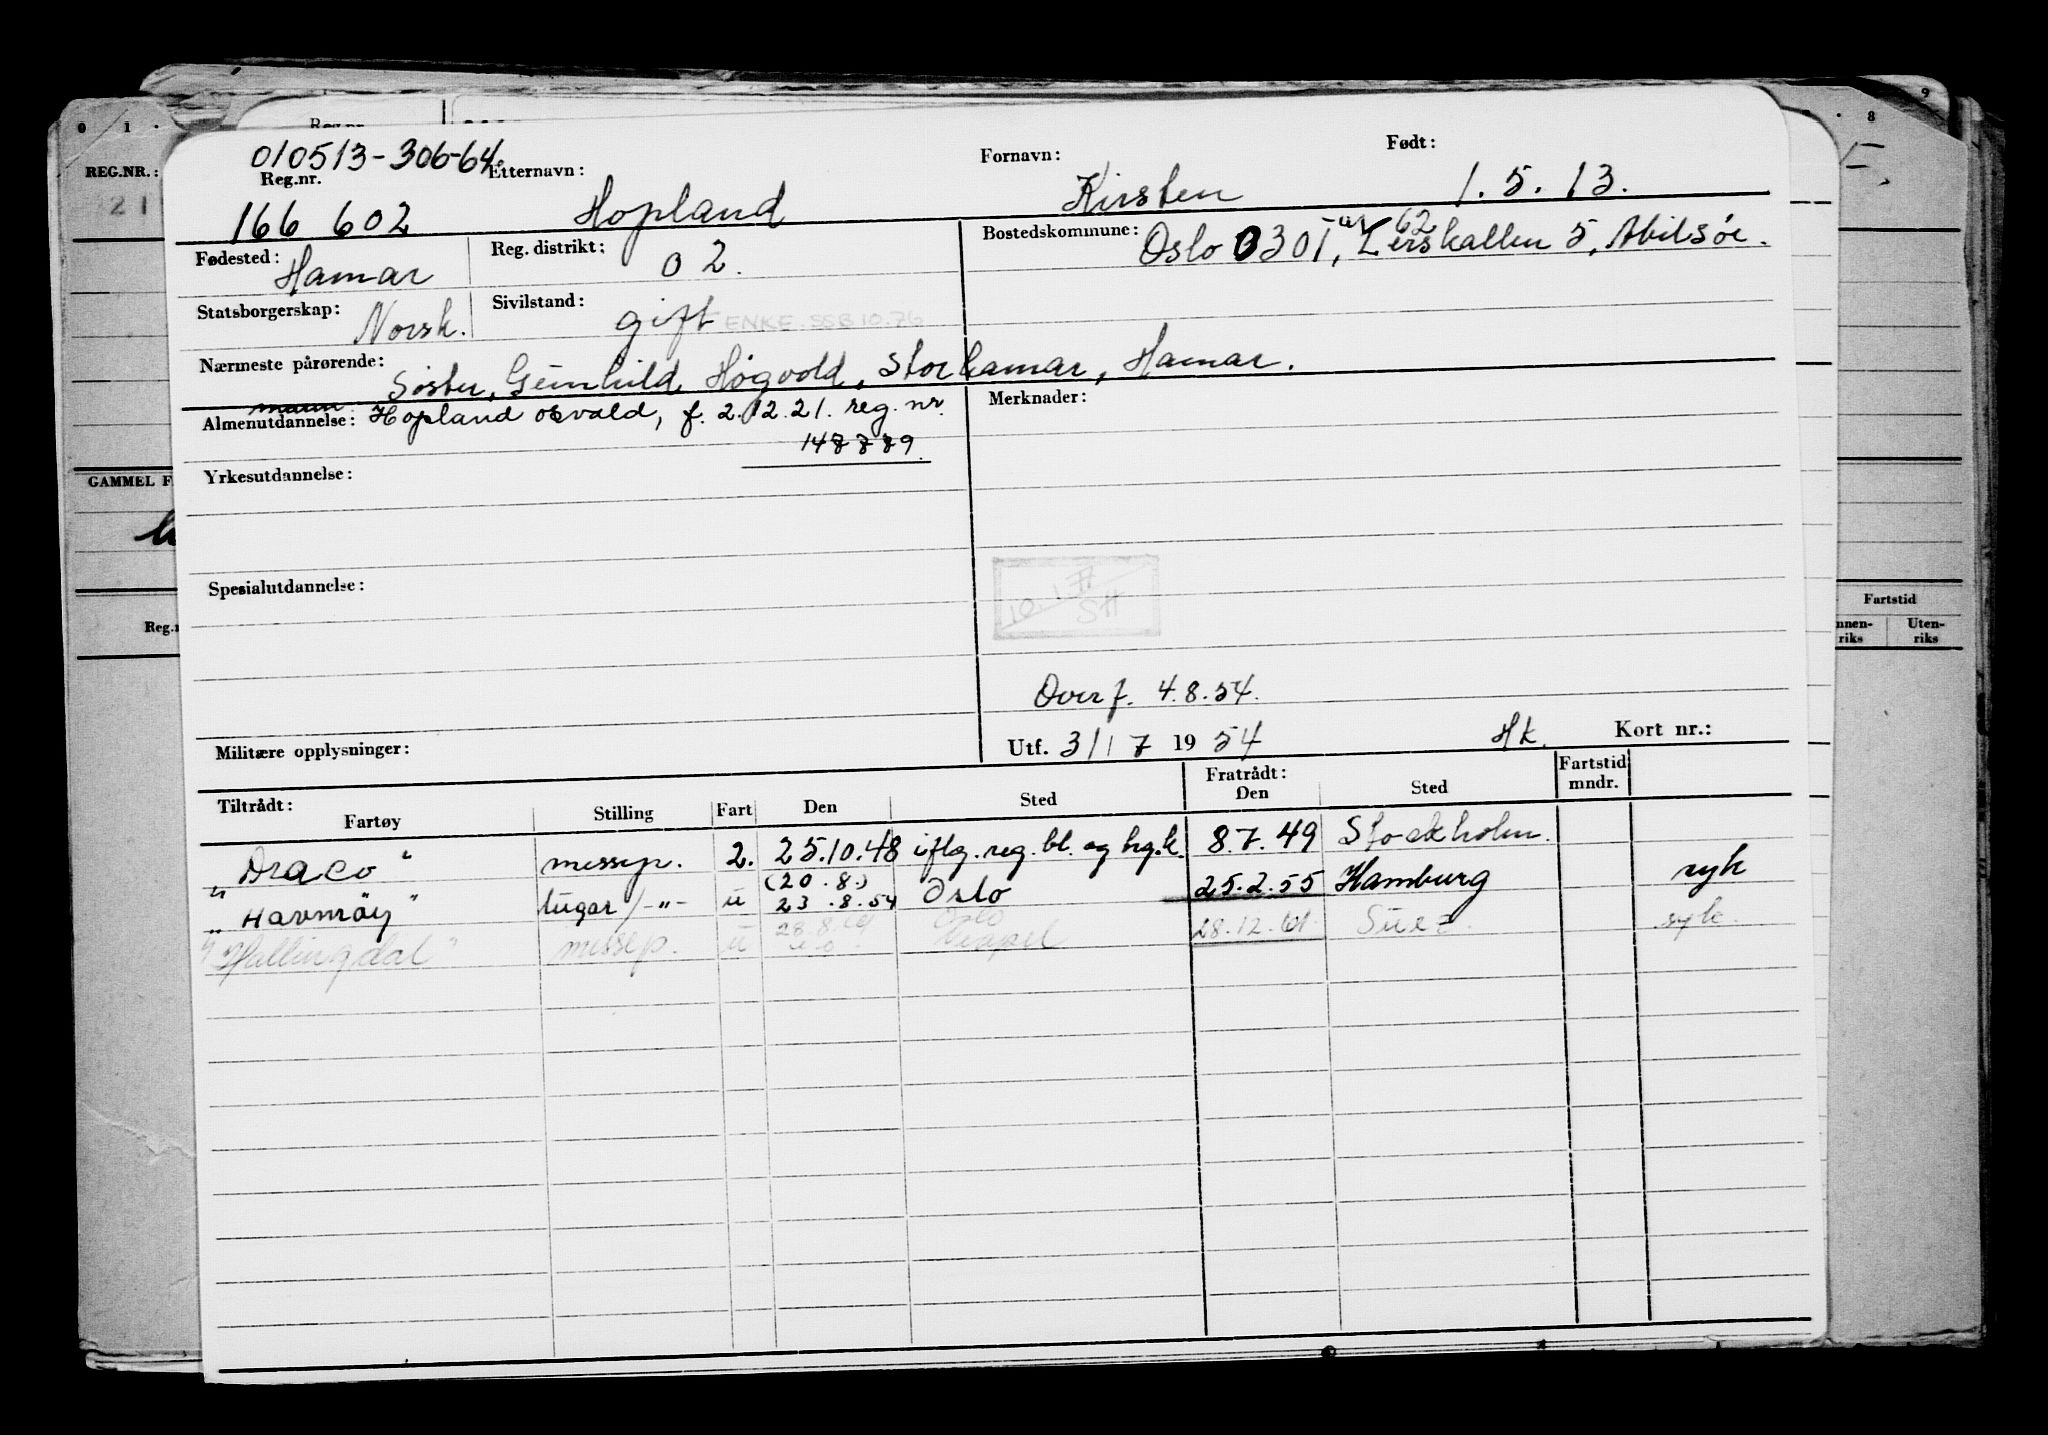 010513-306-64.
Reg.nr. Etternavn: Fornavn: Født:
166 602 Hopland Kirsten 1.5.13.
Fødested: Hamar Reg. distrikt: 02. Bostedskommune: Oslo 0301, Lerskallen 5, Abilsøe.
62
Statsborgerskap: Norsk. Sivilstand: gift ENKE. SSB 10.76
Nærmeste pårørende: Søster, Gunhild Høgvold, Storhamar, Hamar.
mann
Almenutdannelse: Hopland Osvald, f. 2.12.21. reg. nr. Merknader:
148789.
Yrkesutdannelse:
Spesialutdannelse:
Overf. 4.8.54.
Militære opplysninger: Utf. 31/7 1954 Hk. Kort nr.:
Tiltrådt: Fratrådt: Fartstid
Fartøy Stilling Fart Den Sted Den Sted mndr.
"Draco" messep. 2. 25.10.48 iflg. reg. bl. og hg.k. 8.7.49 Stockholm.
(20.8.)
"Havmøy" lugar/-"- u 23.8.54 Oslo 25.2.55 Hamburg syk
28.8.61 Oslo
"Hallingdal" messep. u 28.12.61. Suez. syk.
0 1 . 8 9
REG.NR.:
21
GAMMEL F
Reg.n
Reg.nr.
Fartstid
nnen-
riks
Uten-
riks